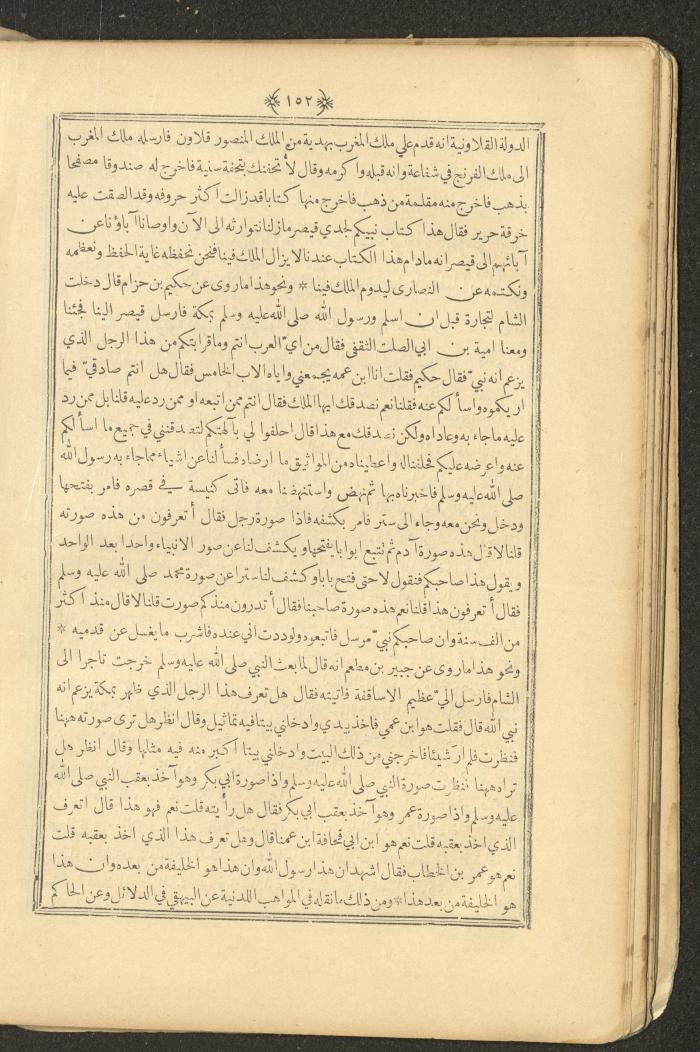 ١٥٢
الدولة القلاونية انه قدم علي ملك المغرب بهدية من الملك المنصور قلاون فارسله ملك المغرب
الى ملك الفرنج في شفاعة وانه قبله واكرمه وقال لأتحفنك بتحفة سنية فاخرج له صندوقا مصفحا
بذهب فاخرج منه مقلمة من ذهب فاخرج منها كتابا قد زالت اكثر حروفه وقد الصقت عليه
خرقة حرير فقال هذا كتاب نبيكم لجدي قيصر مازلنا نتوارثه الى الآن واوصانا آباؤنا عن
آبائهم الى قيصر انه مادام هذا الكتاب عندنا لا يزال الملك فينا فنحن نحفظه غاية الحفظ ونعظمه
ونكتمه عن النصارى ليدوم الملك فينا * ونحو هذا ما روى عن حكيم بن حزام قال دخلت
الشام لتجارة قبل ان اسلم ورسول الله صلى الله عليه وسلم بمكة فارسل قيصر الينا فجئنا
ومعنا امية بن ابي الصلت الثقفى فقال من اي العرب انتم وما قرابتكم من هذا الرجل الذي
يزعم انه نبيّ فقال حكيم فقلت انا ابن عمه يجمعني واياه الاب الخامس فقال هل انتم صادقيّ فيما
اريكموه واسألكم عنه فقلنا نعم نصدقك ايها الملك فقال انتم ممن اتبعه او ممن رد عليه قلنا بل ممن رد
عليه ما جاء به وعاداه ولكن نصدقك مع هذا قال احلفوا لي بآلهتكم لتصدقنني في جميع ما اسألكم
عنه واعرضه عليكم فحلفنا له واعطيناه من المواثيق ما ارضاه فسألنا عن اشياء مما جاء به رسول الله
صلى الله عليه وسلم فاخبرناه بها ثم نهض واستنهضنا معه فاتى كنيسة في قصره فامر بفتحها
ودخل ونحن معه وجاء الى ستر فامر بكشفه فاذا صورة رجل فقال أتعرفون من هذه صورته
قلنا لا قال هذه صورة آدم ثم تتبع ابوابا يفتحها ويكشف لنا عن صور الانبياء واحدا بعد الواحد
ويقول هذا صاحبكم فنقول لا حتى فتح بابا وكشف لنا ستراعن صورة محمد صلى الله عليه وسلم
فقال أتعرفون هذا قلنا نعم هذه صورة صاحبنا فقال أتدرون منذ كم صورت قلنا لا قال منذ اكثر
من الف سنة وان صاحبكم نبيّ مرسل فاتبعوه ولوددت اني عنده فاشرب ما يغسل عن قدميه *
ونحو هذا ما روى عن جبير بن مطعم انه قال لما بعث النبي صلى الله عليه وسلم خرجت تاجرا الى
الشام فارسل اليّ عظيم الاساقفة فاتيته فقال هل تعرف هذا الرجل الذي ظهر بمكة يزعم انه
نبي الله قال فقلت هو ابن عمي فاخذ بيدي وادخلني بيتا فيه تماثيل وقال انظر هل ترى صورته ههنا
فنظرت فلم ار شيئا فاخرجني من ذلك البيت وادخلني بيتا اكبر منه فيه مثلها وقال انظر هل
تراه ههنا فنظرت صورة النبي صلى الله عليه وسلم واذا صورة ابي بكر وهو آخذ بعقب النبي صلى الله
عليه وسلم واذا صورة عمر وهو آخذ بعقب ابي بكر فقال هل رأيته قلت نعم فهو هذا قال اتعرف
الذي اخذ بعقبه قلت نعم هو ابن ابي قحافة ابن عمنا قال وهل تعرف هذا الذي اخذ بعقبه قلت
نعم هو عمر بن الخطاب فقال اشهد ان هذا رسول الله وان هذا هو الخليفة من بعده وان هذا
هو الخليفة من بعد هذا * ومن ذلك ما نقله في المواهب اللدنية عن البيهقي في الدلائل وعن الحاكم